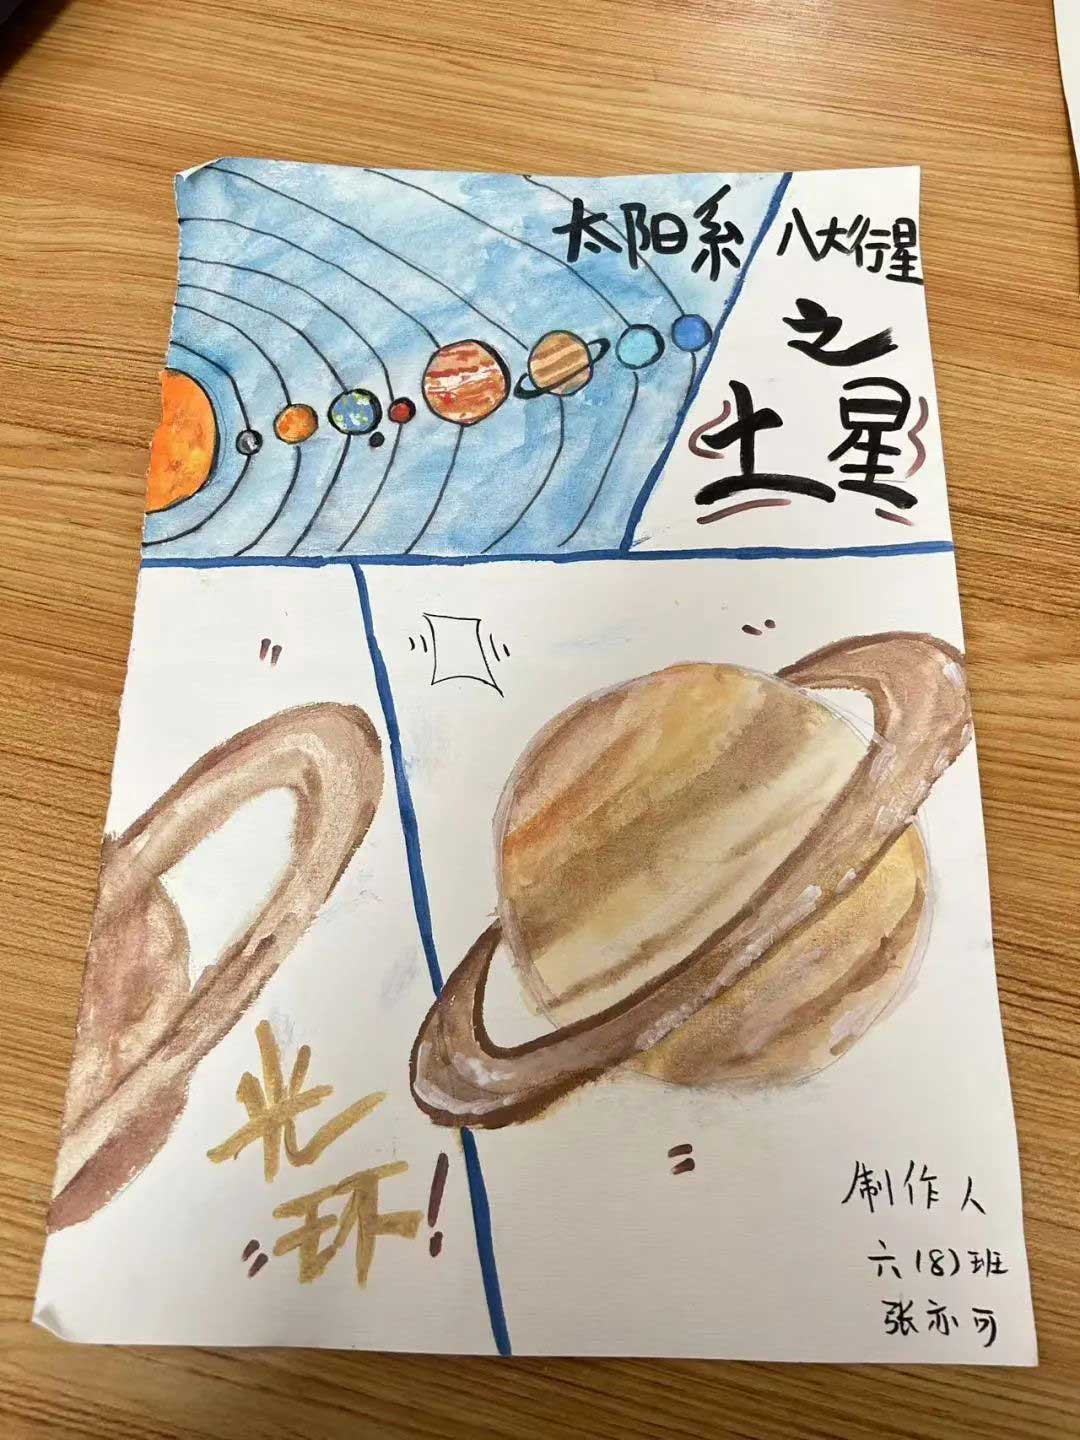 太阳系
八大行星
之
土星
光
环!
制作人
六(8)班
张亦可